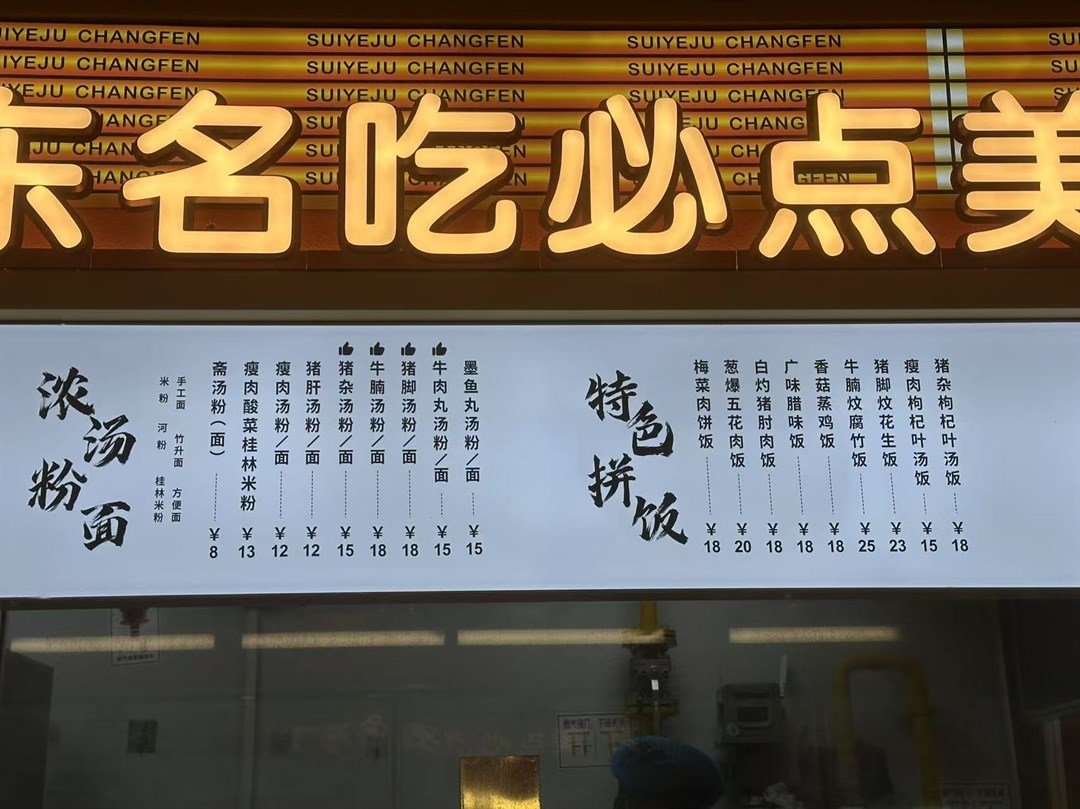 SUIYEJU CHANGFEN SUIYEJU CHANGFEN
SUIYEJU CHANGFEN SUIYEJU CHANGFEN
SUIYEJU CHANGFEN SUIYEJU CHANGFEN
名吃必点美
浓汤粉面
手工面 竹升面 方便面
米粉 河粉 桂林米粉
斋汤粉(面) ¥8
瘦肉酸菜桂林米粉 ¥13
瘦肉汤粉/面 ¥12
猪肝汤粉/面 ¥12
猪杂汤粉/面 ¥15
牛腩汤粉/面 ¥18
猪脚汤粉/面 ¥18
牛肉丸汤粉/面 ¥15
墨鱼丸汤粉/面 ¥15
特色拼饭
梅菜肉饼饭 ¥18
葱爆五花肉饭 ¥20
白灼猪肘肉饭 ¥18
广味腊味饭 ¥18
香菇蒸鸡饭 ¥18
牛腩炆腐竹饭 ¥25
猪脚炆花生饭 ¥23
瘦肉枸杞叶汤饭 ¥15
猪杂枸杞叶汤饭 ¥18